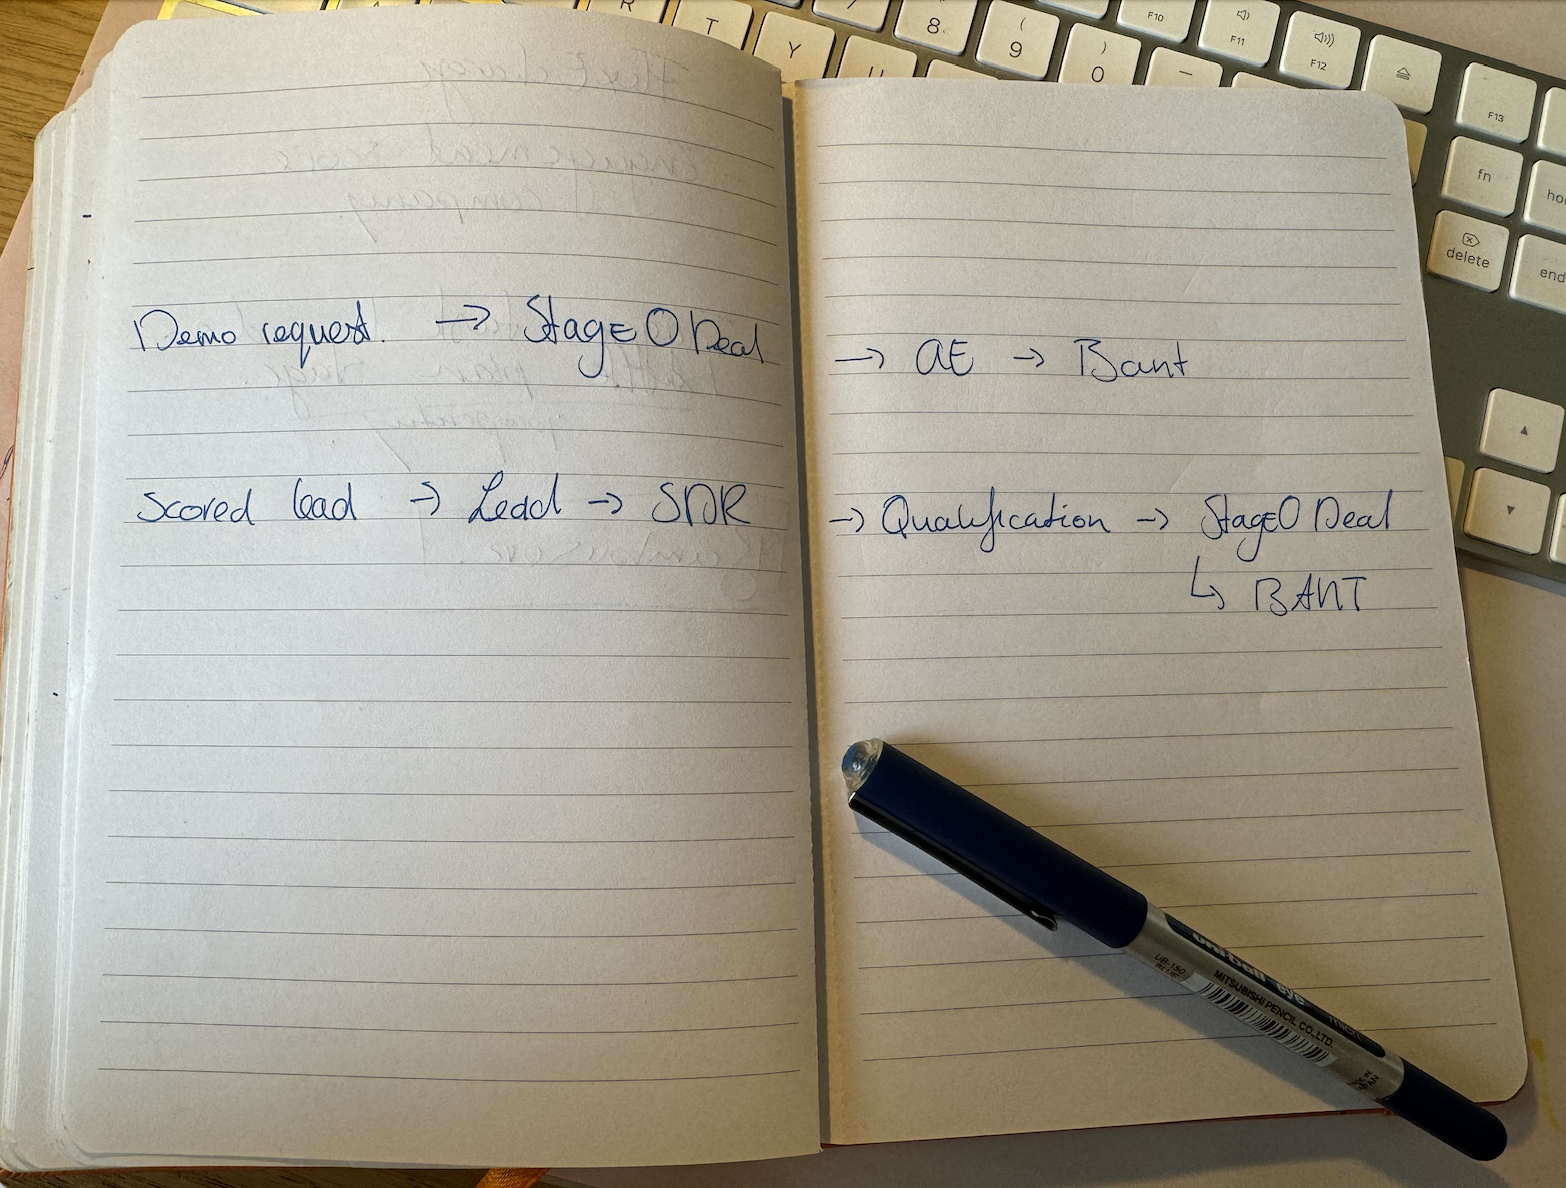 Demo request. → Stage 0 Deal → AE → Bant
Scored lead → Lead → SDR → Qualification → Stage 0 Deal
↳ BANT
R
T
Y
U
8
( 9
) 0
–
F10
F11
F12
F13
fn
delete
end
uni-ball eye
UB-150
MITSUBISHI PENCIL CO.,LTD.